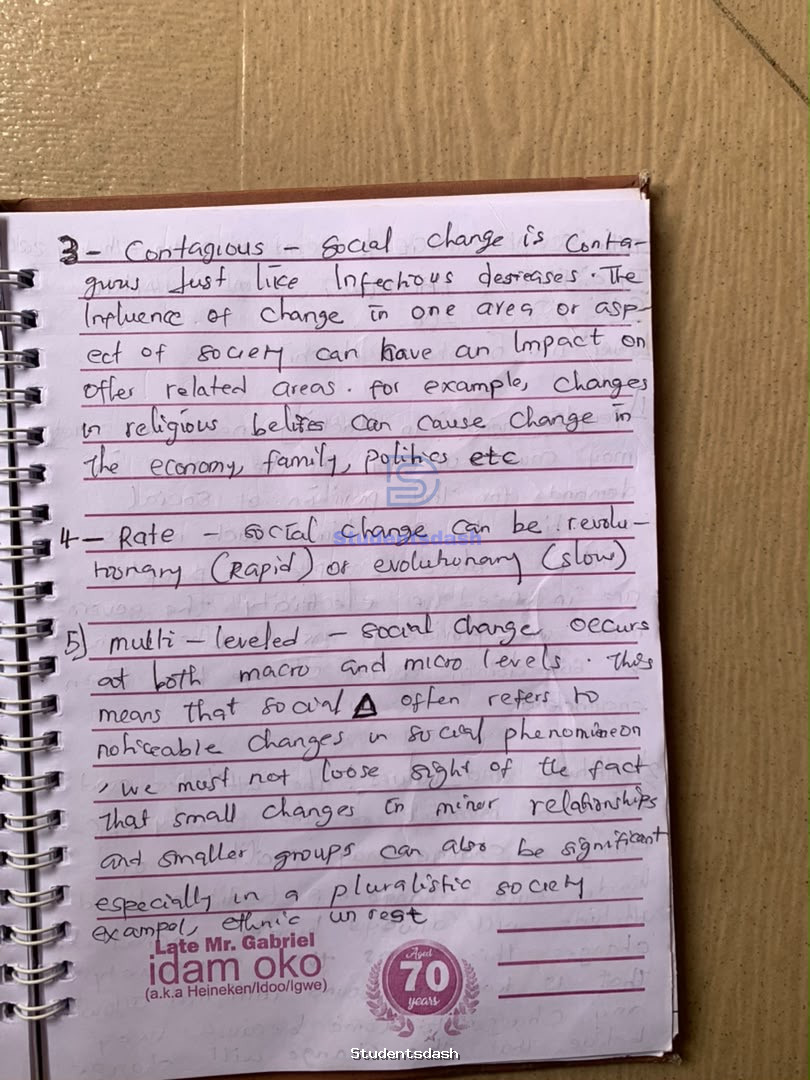 3- Contagious - Social change is Conta-
gious Just like Infectious deseases. The
Influence of change in one area or asp-
ect of society can have an Impact on
offer related areas. for example, changes
in religious belifes can cause change in
the economy, family, politics etc
4- Rate - social change can be revolu-
tionary (Rapid) or evolutionary (slow)
5) multi-leveled - social change occurs
at both macro and micro levels. This
means that social Δ often refers to
noticeable changes in social phenomineon
, we must not loose sight of the fact
that small changes in minor relationships
and smaller groups can also be significant
especially in a pluralistic society
exampol, ethnic unrest
Late Mr. Gabriel
idam oko
(a.k.a Heineken/Idoo/Igwe)
Aged
70
years
Studentsdash
Studentsdash